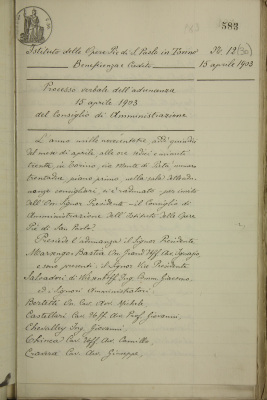 583
Istituto delle Opere Pie di S. Paolo in Torino
N. 12 (30)
Beneficenza e Credito
15 aprile 1903
Processo verbale dell'adunanza
15 aprile 1903
del Consiglio di Amministrazione
L'anno mille novecentotre addì quindici
del mese di aprile, alle ore sedici e minuti
trenta, in Torino, via Monte di Pietà numero
trentadue, piano primo, nella sala delle adu-
nanze consigliari, si è radunato per invito
dell'On. Signor Presidente il Consiglio di
Amministrazione dell'Istituto delle Opere
Pie di San Paolo.
Presiede l'adunanza il Signor Presidente
Marengo Bastia Cav. Grand'Uff. Av. Ignazio,
e sono presenti il Signor Vice Presidente
Salvadori di Wiesenhoff Ing. Giacomo
Ed i Signori Amministratori:
Bertetti On. Cav. Avv. Michele,
Castelleri Cav. Uff. Av. Prof. Giovanni,
Chevalley Ing. Giovanni,
Cav. Uff. Av. Camillo,
Cav. Av. Giuseppe,